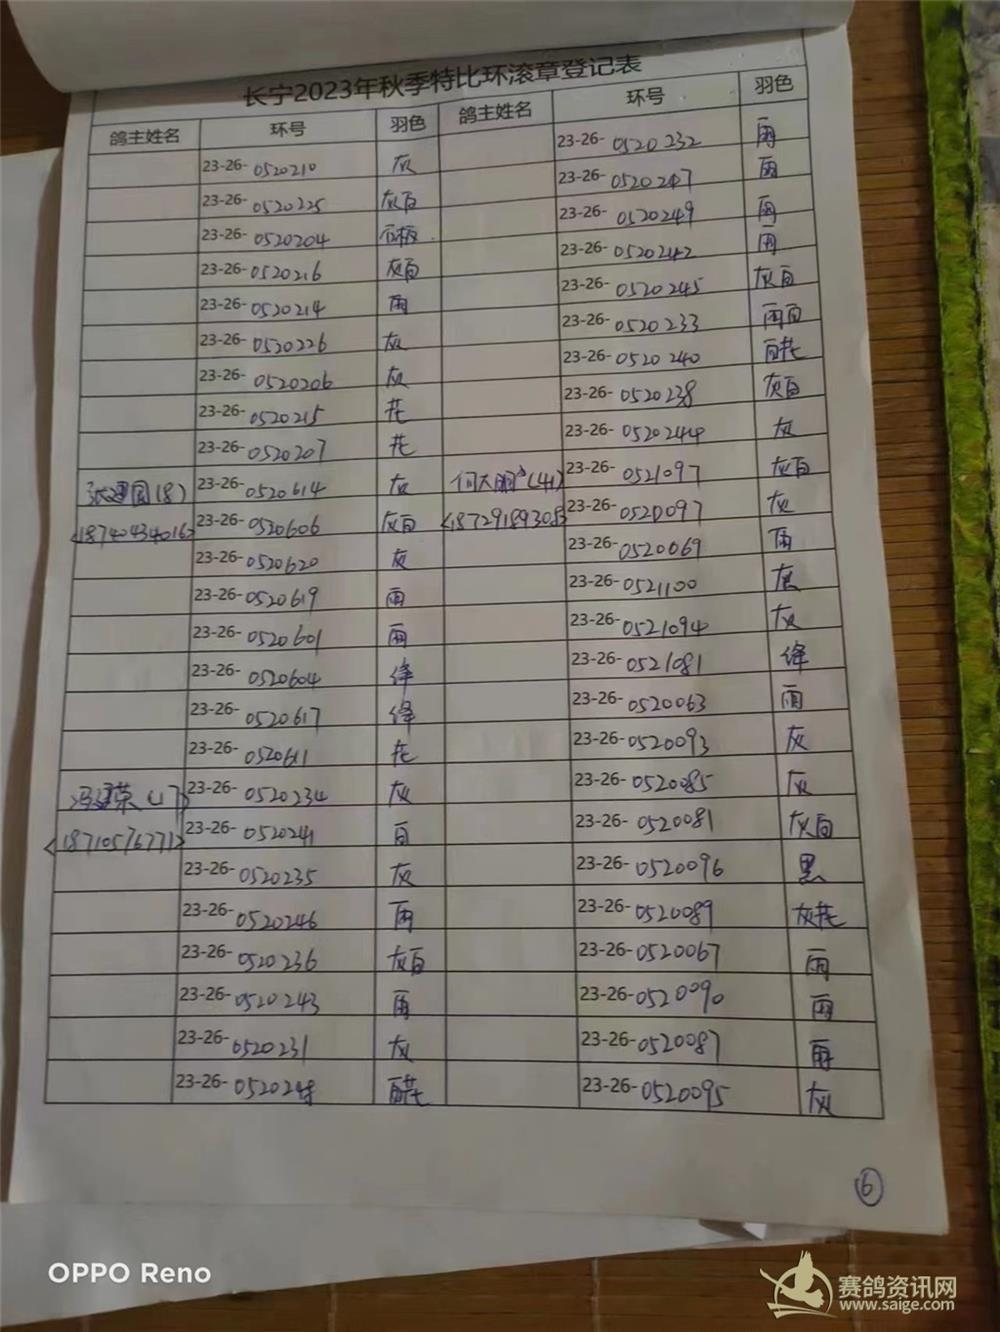 长宁2023年秋季特比环滚章登记表
鸽主姓名 环号 羽色 鸽主姓名 环号 羽色
23-26-0520210 灰 23-26-0520232 雨
23-26-0520225 灰白 23-26-0520247 雨
23-26-0520204 石板 23-26-0520249 雨
23-26-0520216 灰白 23-26-0520242 雨
23-26-0520214 雨 23-26-0520245 灰白
23-26-0520226 灰 23-26-0520233 雨白
23-26-0520206 灰 23-26-0520240 花
23-26-0520215 花 23-26-0520238 灰白
23-26-0520207 花 23-26-0520244 灰
张建国(8) 23-26-0520614 灰 何大鹏(41) 23-26-0521097 灰白
<18740434016> 23-26-0520606 灰白 <18729189308> 23-26-0520097 灰
23-26-0520620 灰 23-26-0520069 雨
23-26-0520619 雨 23-26-0521100 灰
23-26-0520601 雨 23-26-0521094 灰
23-26-0520604 绛 23-26-0521081 绛
23-26-0520617 绛 23-26-0520063 雨
23-26-0520611 花 23-26-0520093 灰
冯建荣(17) 23-26-0520234 灰 23-26-0520085 灰
<18710576771> 23-26-0520241 白 23-26-0520081 灰白
23-26-0520235 灰 23-26-0520096 黑
23-26-0520246 雨 23-26-0520089 灰花
23-26-0520236 灰白 23-26-0520067 雨
23-26-0520243 雨 23-26-0520090 雨
23-26-0520231 灰 23-26-0520087 雨
23-26-0520248 花 23-26-0520095 灰
6
OPPO Reno
赛鸽资讯网
www.saige.com